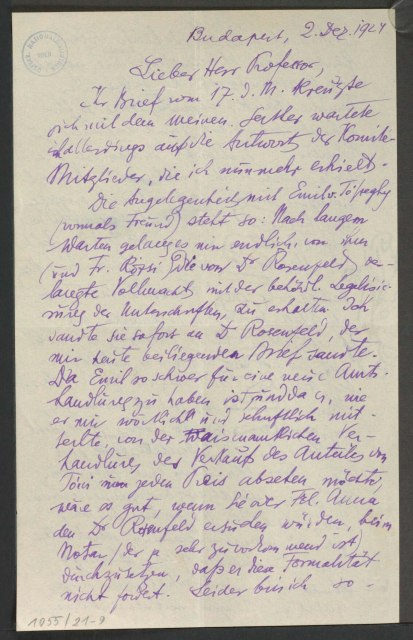 Budapest, 2. Dez. 1924
Lieber Herr Professor,
Ihr Brief vom 17. d. M. kreuzte
sich mit dem meinen. Seither wartete
ich allerdings auf die Antwort der Komitee-
Mitglieder, die ich nunmehr erhielt.
Die Angelegenheit mit Emil v.
(vormals Freund) steht so: Nach langem
Warten gelang es mir endlich, von ihm
(und Fr. Rózsi) die von Dr Rosenfeld ver-
langte Vollmacht mit der behördl. Legalisie-
rung der Unterschriften, zu erhalten. Ich
sandte sie sofort an Dr Rosenfeld, der
mir heute beiliegenden Brief sandte.
Da Emil so schwer für eine neue Amts-
handlung zu haben ist, und da er, wie
er mir wörtlich und schriftlich mit-
teilte, von der Ver-
handlung des Verkaufs des Anteiles von
Toni um jeden Preis absehen möchte,
wäre es gut, wenn Sie oder Frl. Anna
den Dr Rosenfeld ersuchen würden, beim
Notar (der ja sehr zuvorkommend ist)
durchzusetzen, daß er diese Formalität
nicht fordert. Leider bin ich so
1055/21-9